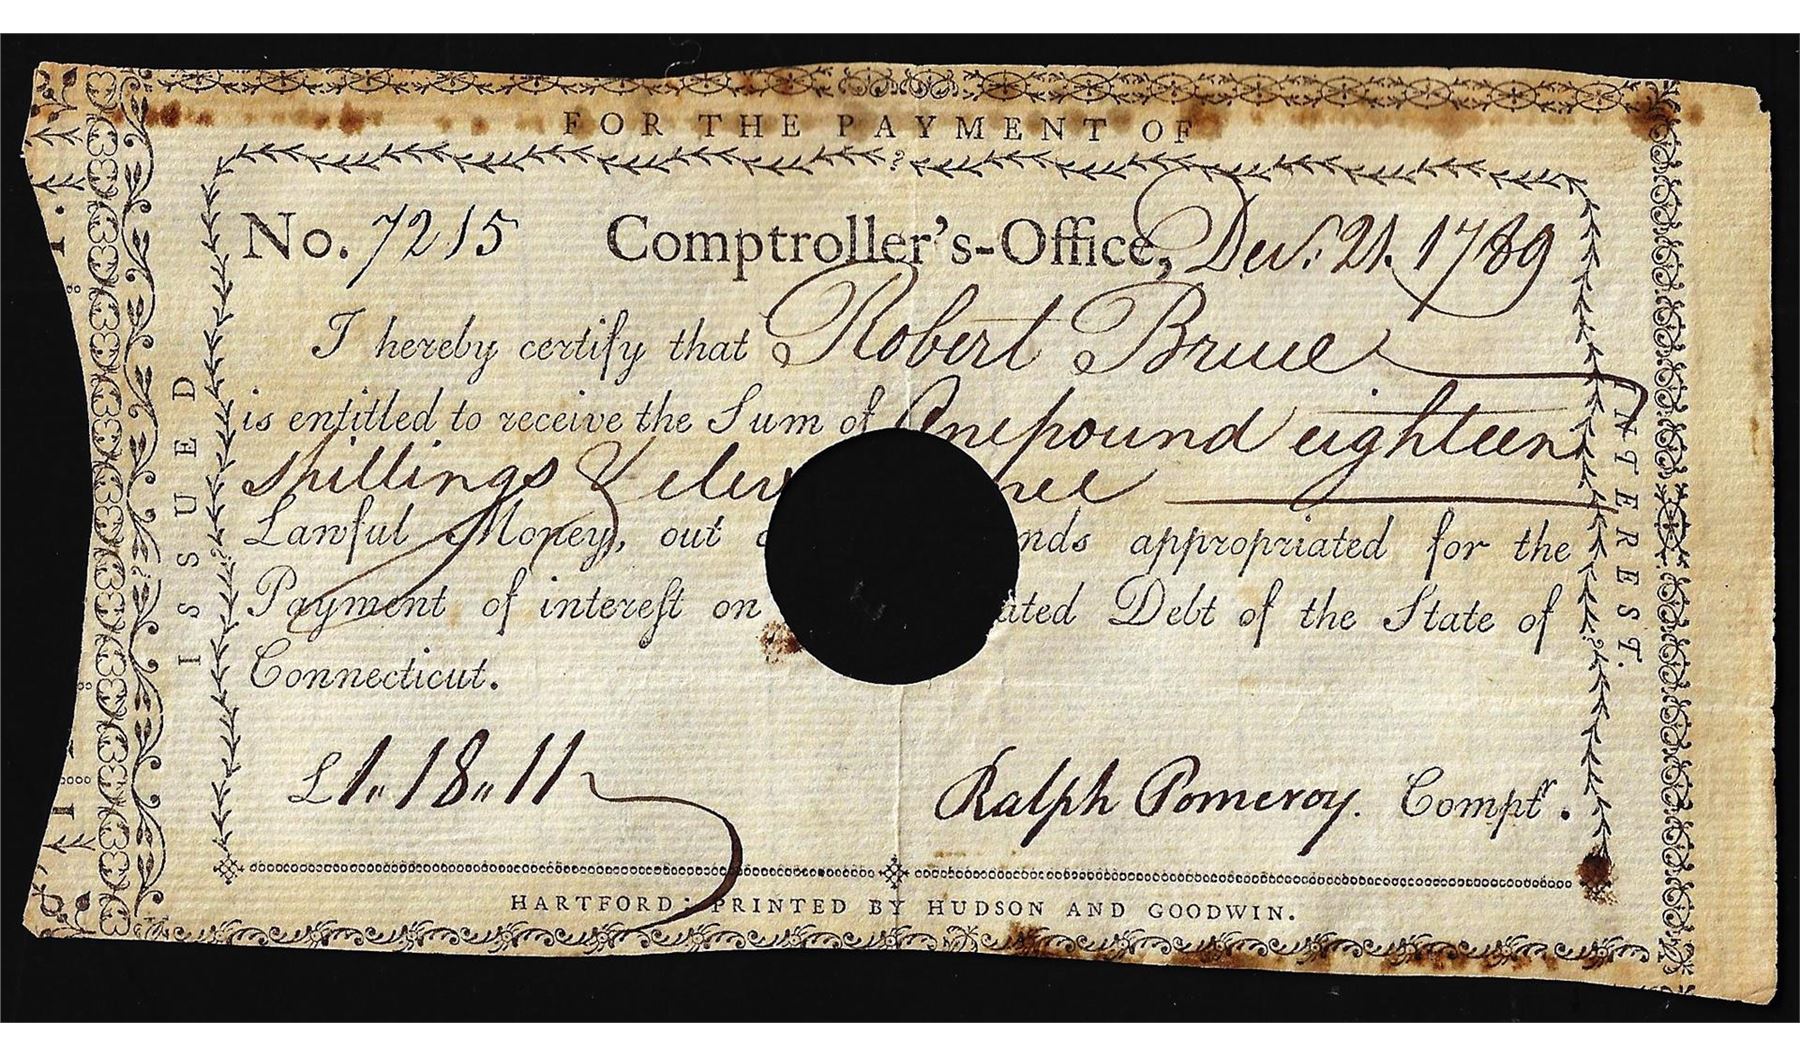 FOR THE PAYMENT OF
ISSUED
INTEREST.
No. 7215 Comptroller's-Office, Decr. 21. 1789
I hereby certify that Robert Bruce
is entitled to receive the Sum of One pound eighteen
shillings & elev nce
Lawful Money, out nds appropriated for the
Payment of intereſt on ated Debt of the State of
Connecticut.
£1..18..11 Ralph Pomeroy. Comptr.
HARTFORD: PRINTED BY HUDSON AND GOODWIN.